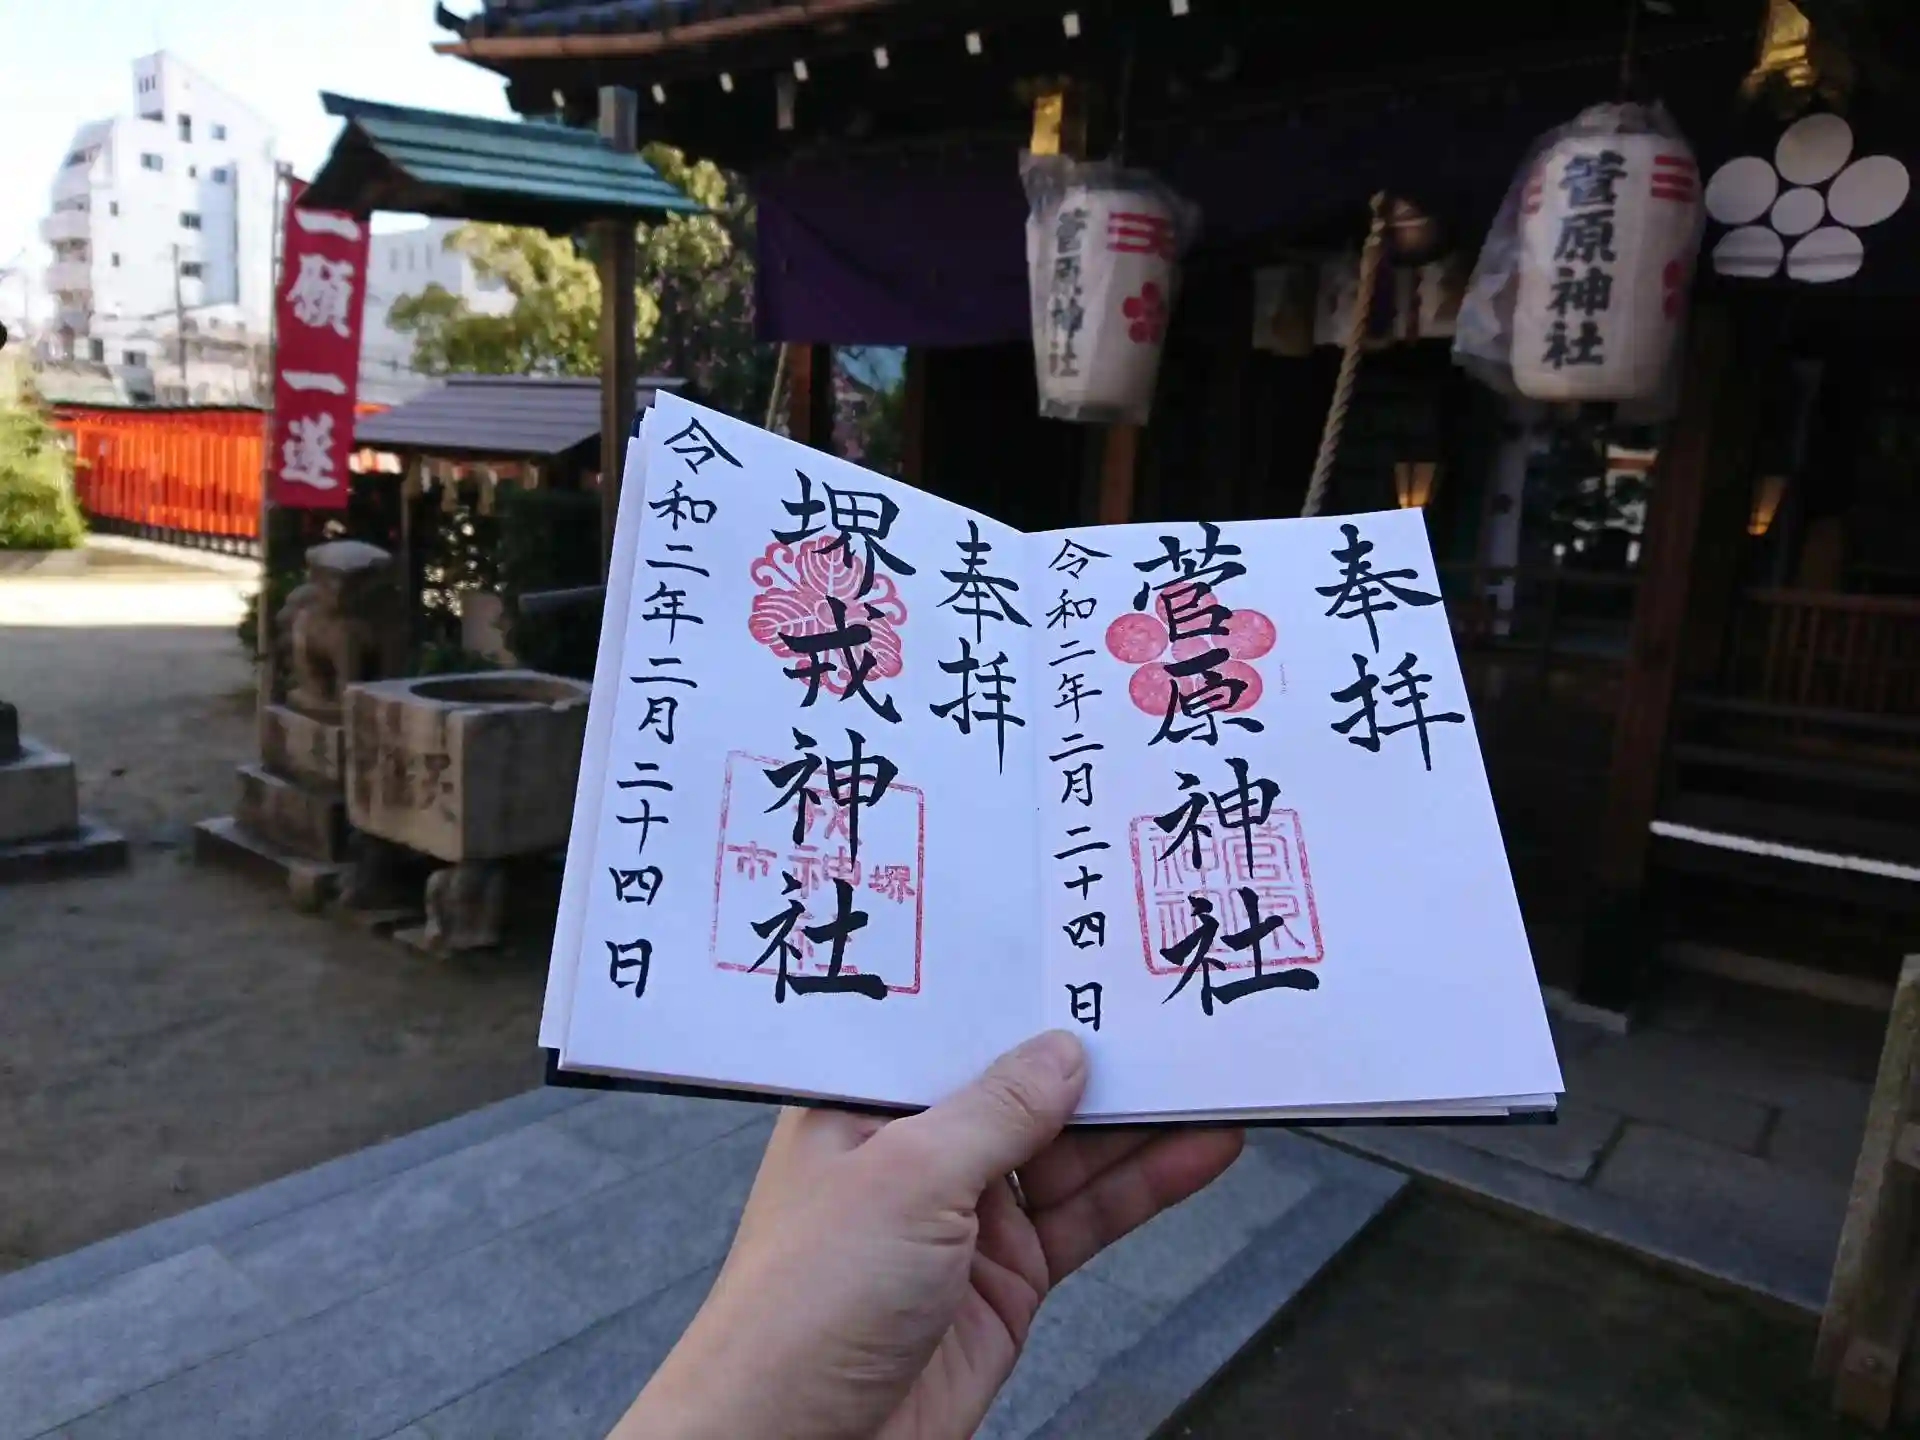 奉拝
菅原神社
令和二年二月二十四日
奉拝
堺戎神社
令和二年二月二十四日
堺
戎神社
市
菅原
神社
菅原神社
菅原神社
一願一遂